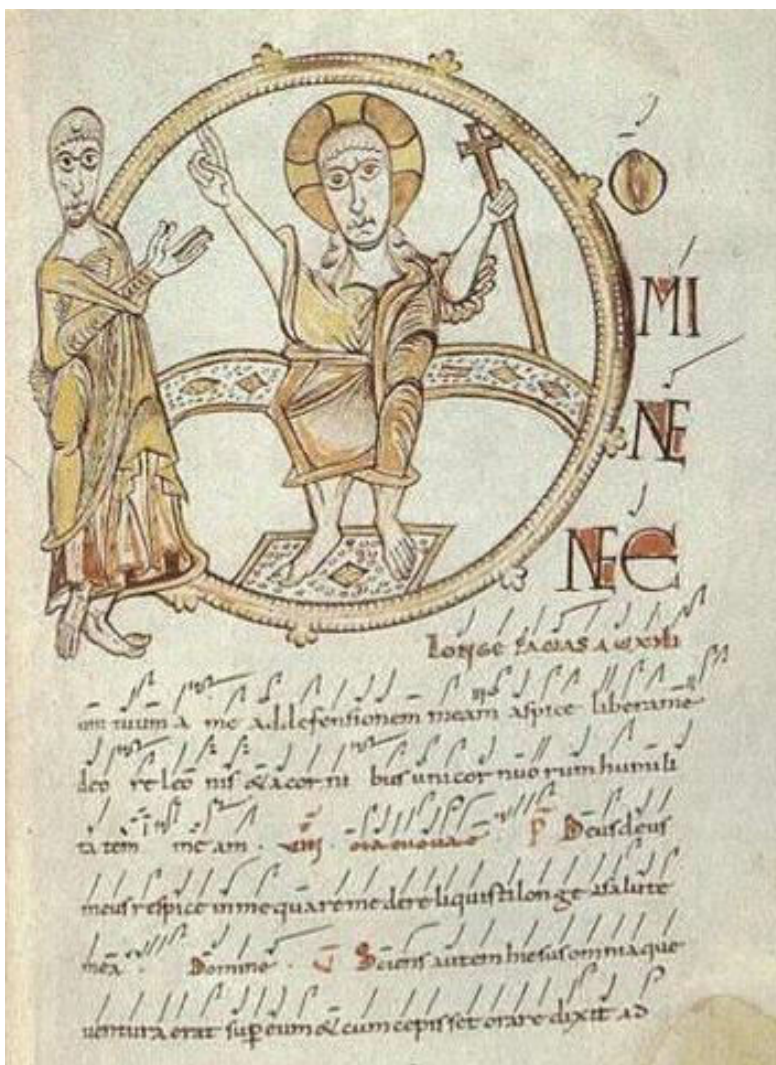 DO
MI
NE
NE
longe facias auxili
um tuum a me ad defensionem meam aspice libera me
deo re leo nis & a cor ni bus uni cor nuo rum humili
ta tem me am . P Deus deus
meus respice in me quare me dereliquisti longe a salute
mea . Domine . V Sciens autem hiesus omnia que
ventura erat sup eum & cum cepisset orare dixit ad